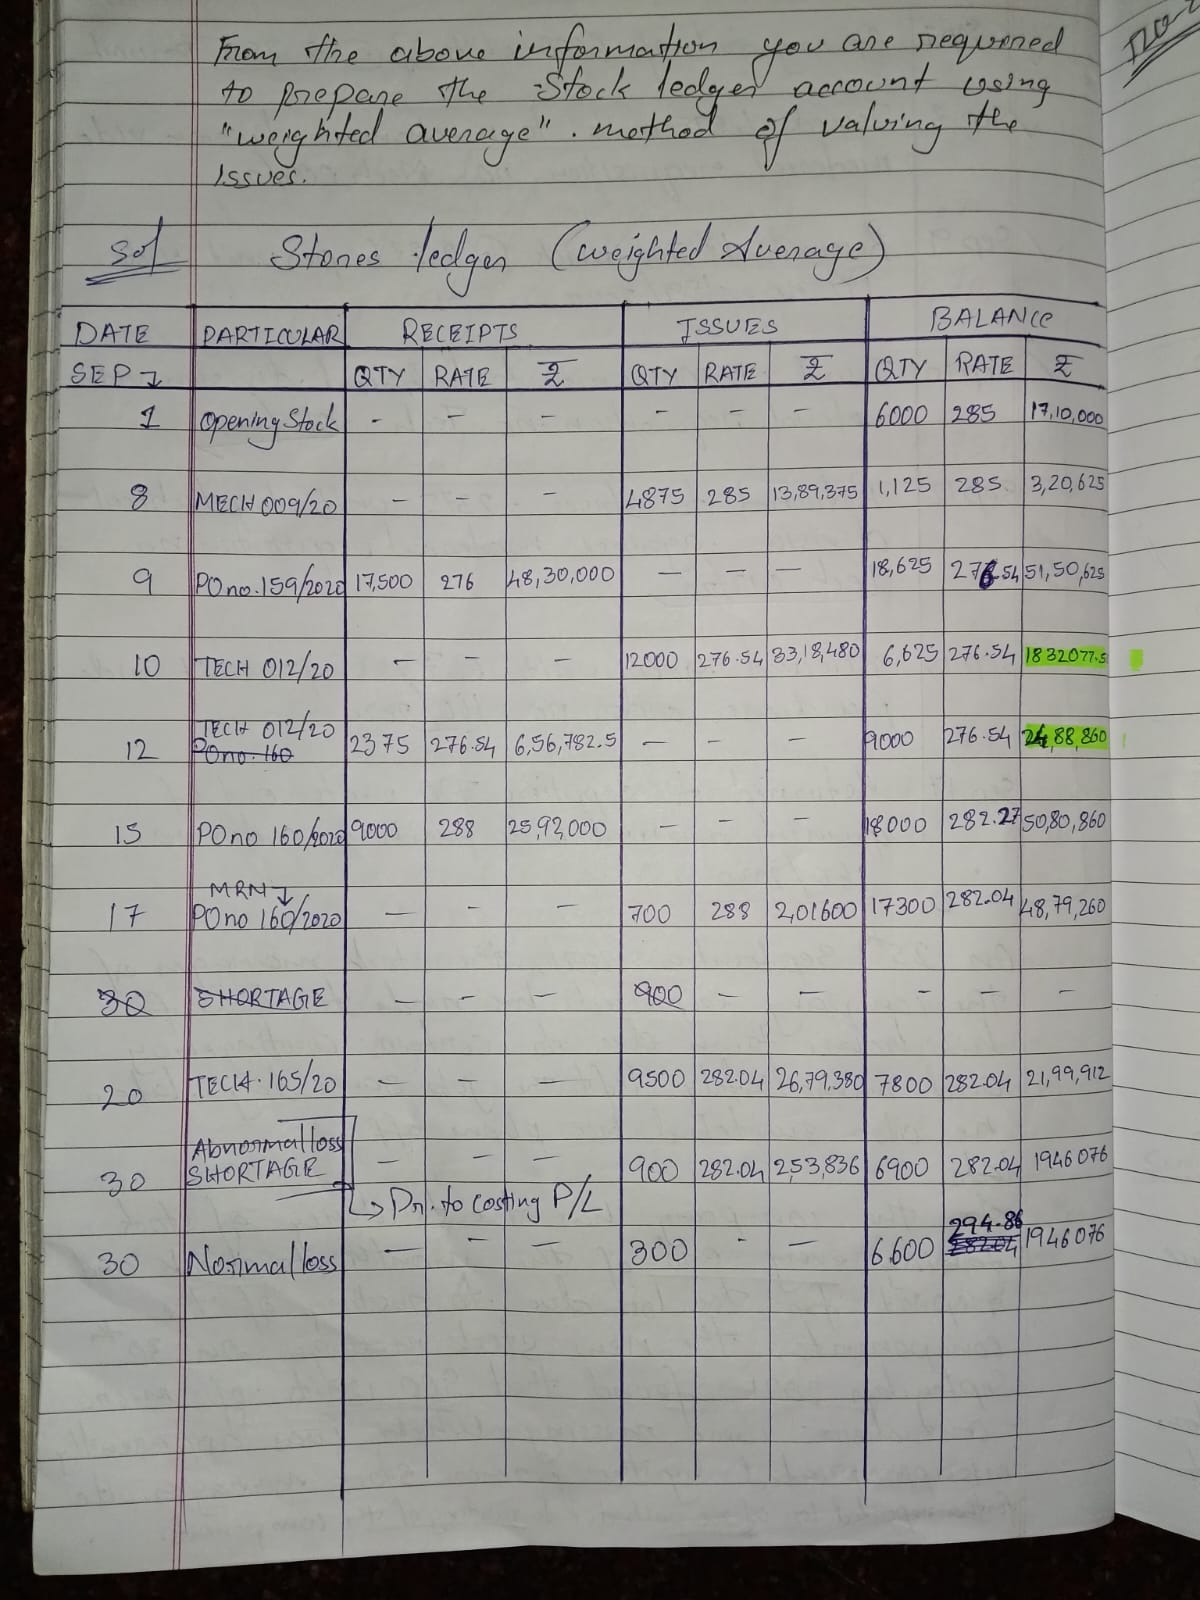 From the above information you are required
to prepare the Stock ledger account using
"weighted average". method of valuing the
Issues.
Sol Stores ledger (weighted Average)
DATE PARTICULAR RECEIPTS ISSUES BALANCE
SEP ↓ QTY RATE ₹ QTY RATE ₹ QTY RATE ₹
1 Opening Stock - - - - - - 6000 285 17,10,000
8 MECH 009/20 - - - 4875 285 13,89,375 1,125 285 3,20,625
9 PO no. 159/2020 17,500 276 48,30,000 - - - 18,625 276.54 51,50,625
10 TECH 012/20 - - - 12000 276.54 33,18,480 6,625 276.54 1832077.5
TECH 012/20
12 PO no. 160 2375 276.54 6,56,782.5 - - - 9000 276.54 24,88,860
15 PO no 160/2020 9000 288 25,92,000 - - - 18000 282.27 50,80,860
MRN ↓
17 PO no 160/2020 - - - 700 288 2,01600 17300 282.04 48,79,260
30 SHORTAGE - - - 900 - - - - -
20 TECH. 165/20 - - - 9500 282.04 26,79,380 7800 282.04 21,99,912
Abnormal loss
30 SHORTAGE - - - 900 282.04 2,53,836 6900 282.04 1946076
↳ Dr. to costing P/L
294.86
30 Normal loss - - - 300 - - 6600 282.04 1946076